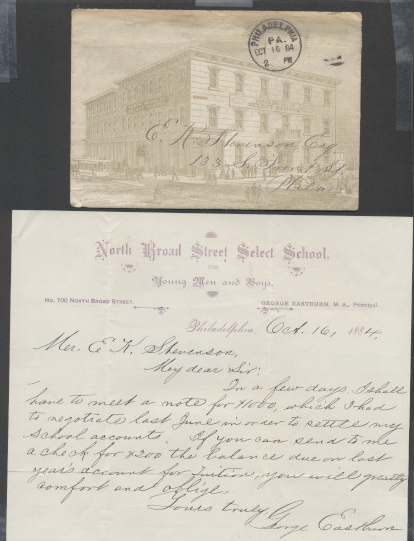 PHILADELPHIA
PA.
OCT 16 84
2 PM
E. K. Stevenson Esq
Phila
North Broad Street Select School,
FOR
Young Men and Boys.
NO. 700 NORTH BROAD STREET.
GEORGE EASTBURN, M. A., Principal.
Philadelphia, Oct. 16, 1884.
Mr. E. K. Stevenson,
My dear Sir:
In a few days I shall
have to meet a note for $1000, which I had
to negotiate last June in order to settle my
school accounts. If you can send to me
a check for $200 the balance due on last
year's account for Tuition, you will greatly
comfort and oblige
Yours truly
George Eastburn